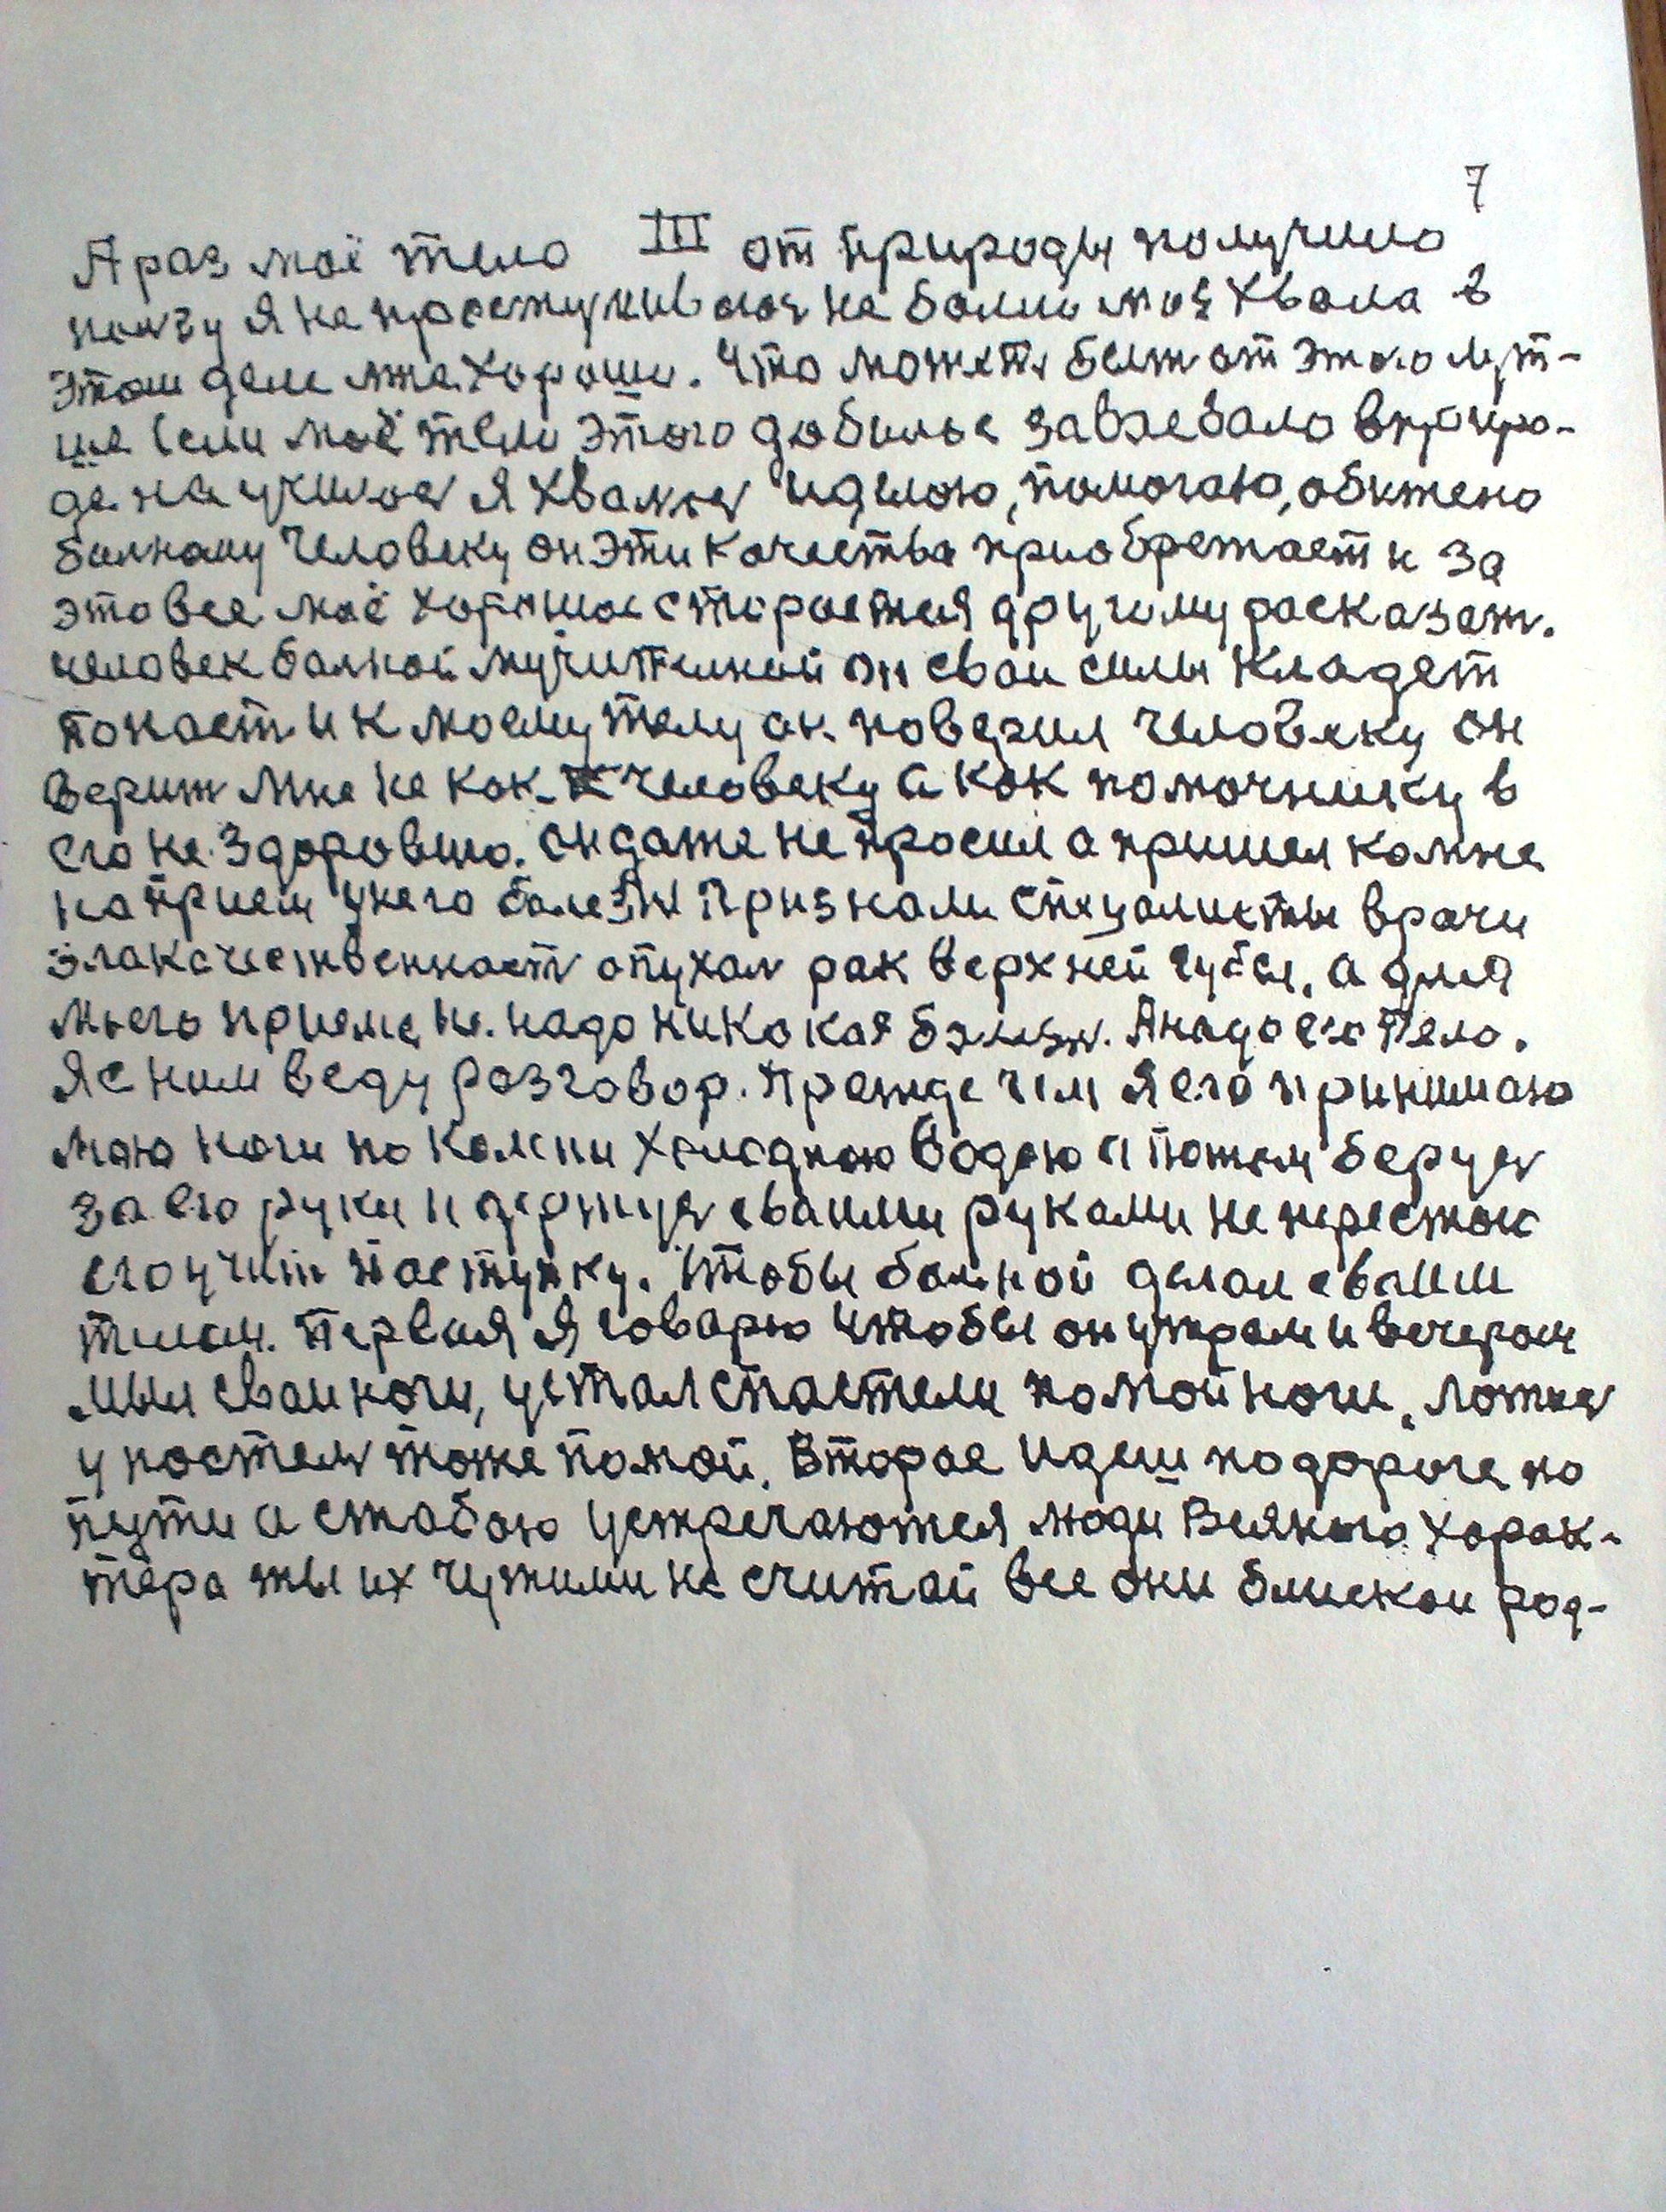 7
А раз моё тело III от природы получило
почу я не простуживаюя не болею моя хвала в
этом деле мне хороше. Что можеть быть от этого лут-
ше если моё тело этого добилос завоевало в приро-
де научилос я хвалюс иделаю, помогаю, обижено
болному человеку он эти качества приобретает и за
это все моё хорошое старается другому расказат.
человек болной мучителной он свои силы кладет
покает и к моему телу он поверил человеку он
верит мне не как к человеку а как помочнику в
его не здоровию. он даже не просил а пришел комне
на прием унего болезн признали спецыалисты врачи
злакачественност опухал рак верхней губы, а для
моего приема не надо никокая болезн. А надо его тело.
Я с ним веду разговор. Прежде чем я его принимаю
маю ноги по колени холодною водою а потом беруся
за его руки и держуся своими руками не перестою
его учить поступку. Чтобы болной делал своим
телом. Первая я говарю чтобы он утром и вечером
мыл свои ноги, устал спастели помой ноги. ложися
у постель тоже помой. Второе идеш по дороге по
пути а стобою устречаются люди всякого харак-
тера ты их чужими не считай все они блиской род-